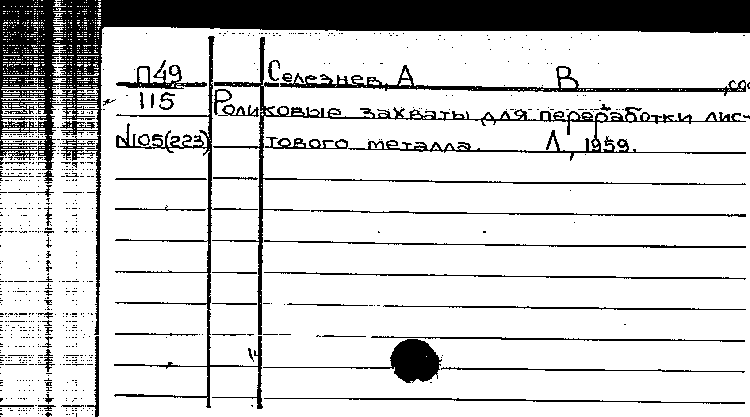 П49 Селезнев, А В
115 Роликовые захваты для переработки лис-
N105(223) тового металла. Л., 1959.